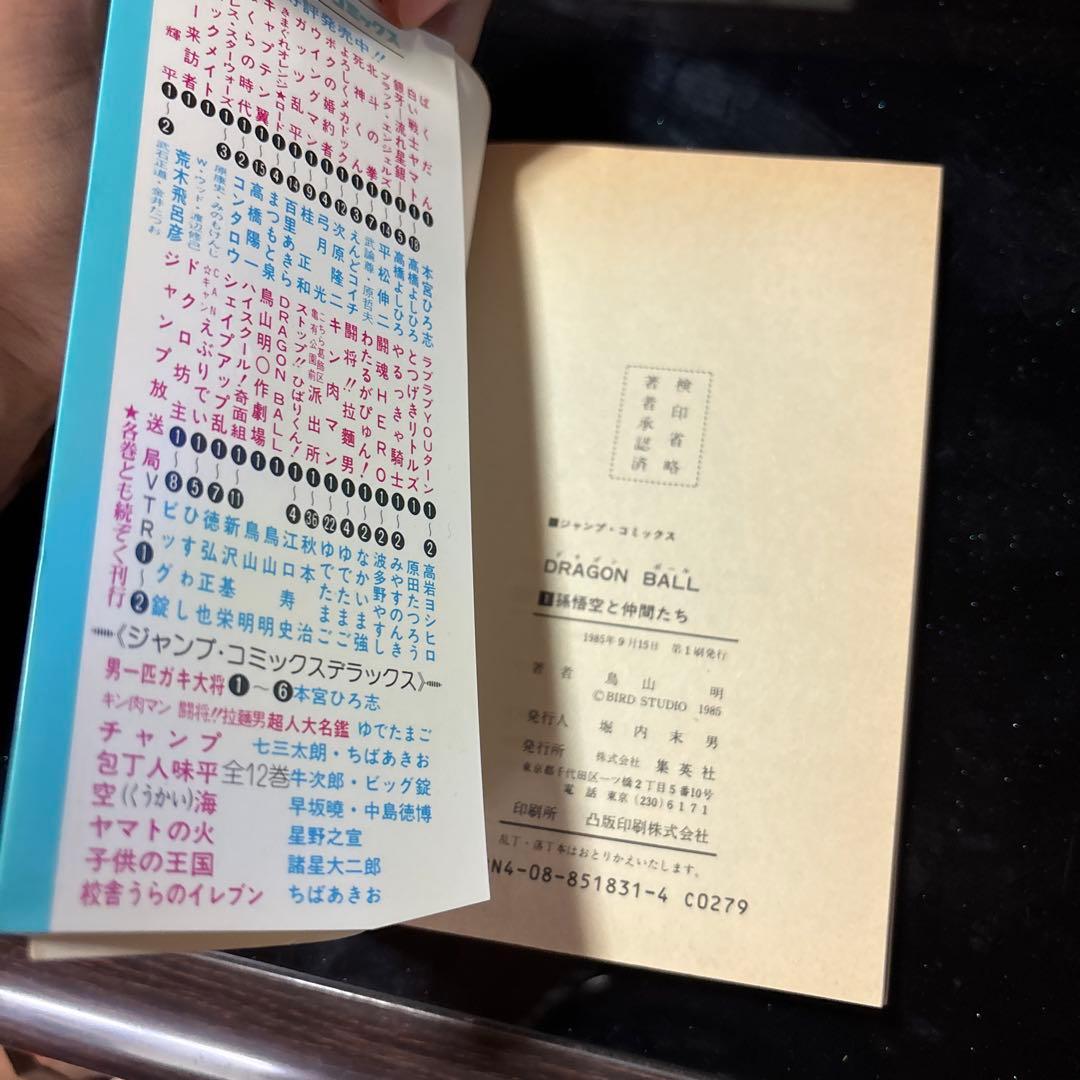 コミックス
好評発売中!!
ばくだん❶ 本宮ひろ志
白い戦士ヤマト❶〜⓲ 高橋よしひろ
銀牙―流れ星 銀―❶〜❺ 高橋よしひろ
ブラック・エンジェルズ❶〜⓮ 平松伸二
北斗の拳❶〜❼ 武論尊・原哲夫
死神くん❶〜❸ えんどコイチ
よろしくメカドック❶〜⓬ 次原隆二
の婚約者❶〜❹ 弓月光
ウイングマン❶〜❾ 桂正和
ガッツ乱平❶〜⓮ 百里あきら
きまぐれオレンジ★ロード❶〜❹ まつもと泉
キャプテン翼❶〜⓯ 高橋陽一
くらの時代❶〜❷ コンタロウ
ス・スターウォーズ❶〜❸ 原康史・みのもけんじ
ックメイト❶ W・ウッド・渡辺修己
来訪者❶ 荒木飛呂彦
輝平❶〜❷ 武石正道・金井たつお
ラブラブYOUターン❶〜❷ 高岩ヨシヒロ
とつげきリトルズ❶ 原田たつろう
やるっきゃ騎士❶〜❷ みやすのんき
闘魂HERO❶〜❷ 波多野やすし
わたるがぴゅん!❶〜❷ なかいま強
闘将!!拉麵男❶〜❹ ゆでたまご
キン肉マン❶〜㉒ ゆでたまご
こちら葛飾区亀有公園前派出所❶〜㊱ 秋本治
ストップ!!ひばりくん!❶〜❹ 江口寿史
DRAGON BALL❶ 鳥山明
鳥山明○作劇場❶ 鳥山明
ハイスクール!奇面組❶〜⓫ 新沢基栄
シェイプアップ乱❶〜❼ 徳弘正也
☆CANキャンえぶりでい❶〜❺ ひすわし
ドクロ坊主❶〜❽ ビッグ錠
ジャンプ放送局VTR❶〜❷
★各巻とも続ぞく刊行
《ジャンプ・コミックスデラックス》
男一匹ガキ大将❶〜❻本宮ひろ志
キン肉マン 闘将!!拉麵男超人大名鑑 ゆでたまご
チャンプ 七三太朗・ちばあきお
包丁人味平全12巻牛次郎・ビッグ錠
空((くうかい)海 早坂暁・中島徳博
ヤマトの火 星野之宣
子供の王国 諸星大二郎
校舎うらのイレブン ちばあきお
検印省略
著者承認済
■ジャンプ・コミックス
ドラゴン ボール
DRAGON BALL
1孫悟空と仲間たち
1985年9月15日 第1刷発行
著者 鳥山明
©BIRD STUDIO 1985
発行人 堀内末男
発行所 株式会社 集英社
東京都千代田区一ツ橋2丁目5番10号
電話 東京(230)6171
印刷所 凸版印刷株式会社
乱丁・落丁本はおとりかえいたします。
N4-08-851831-4 C0279